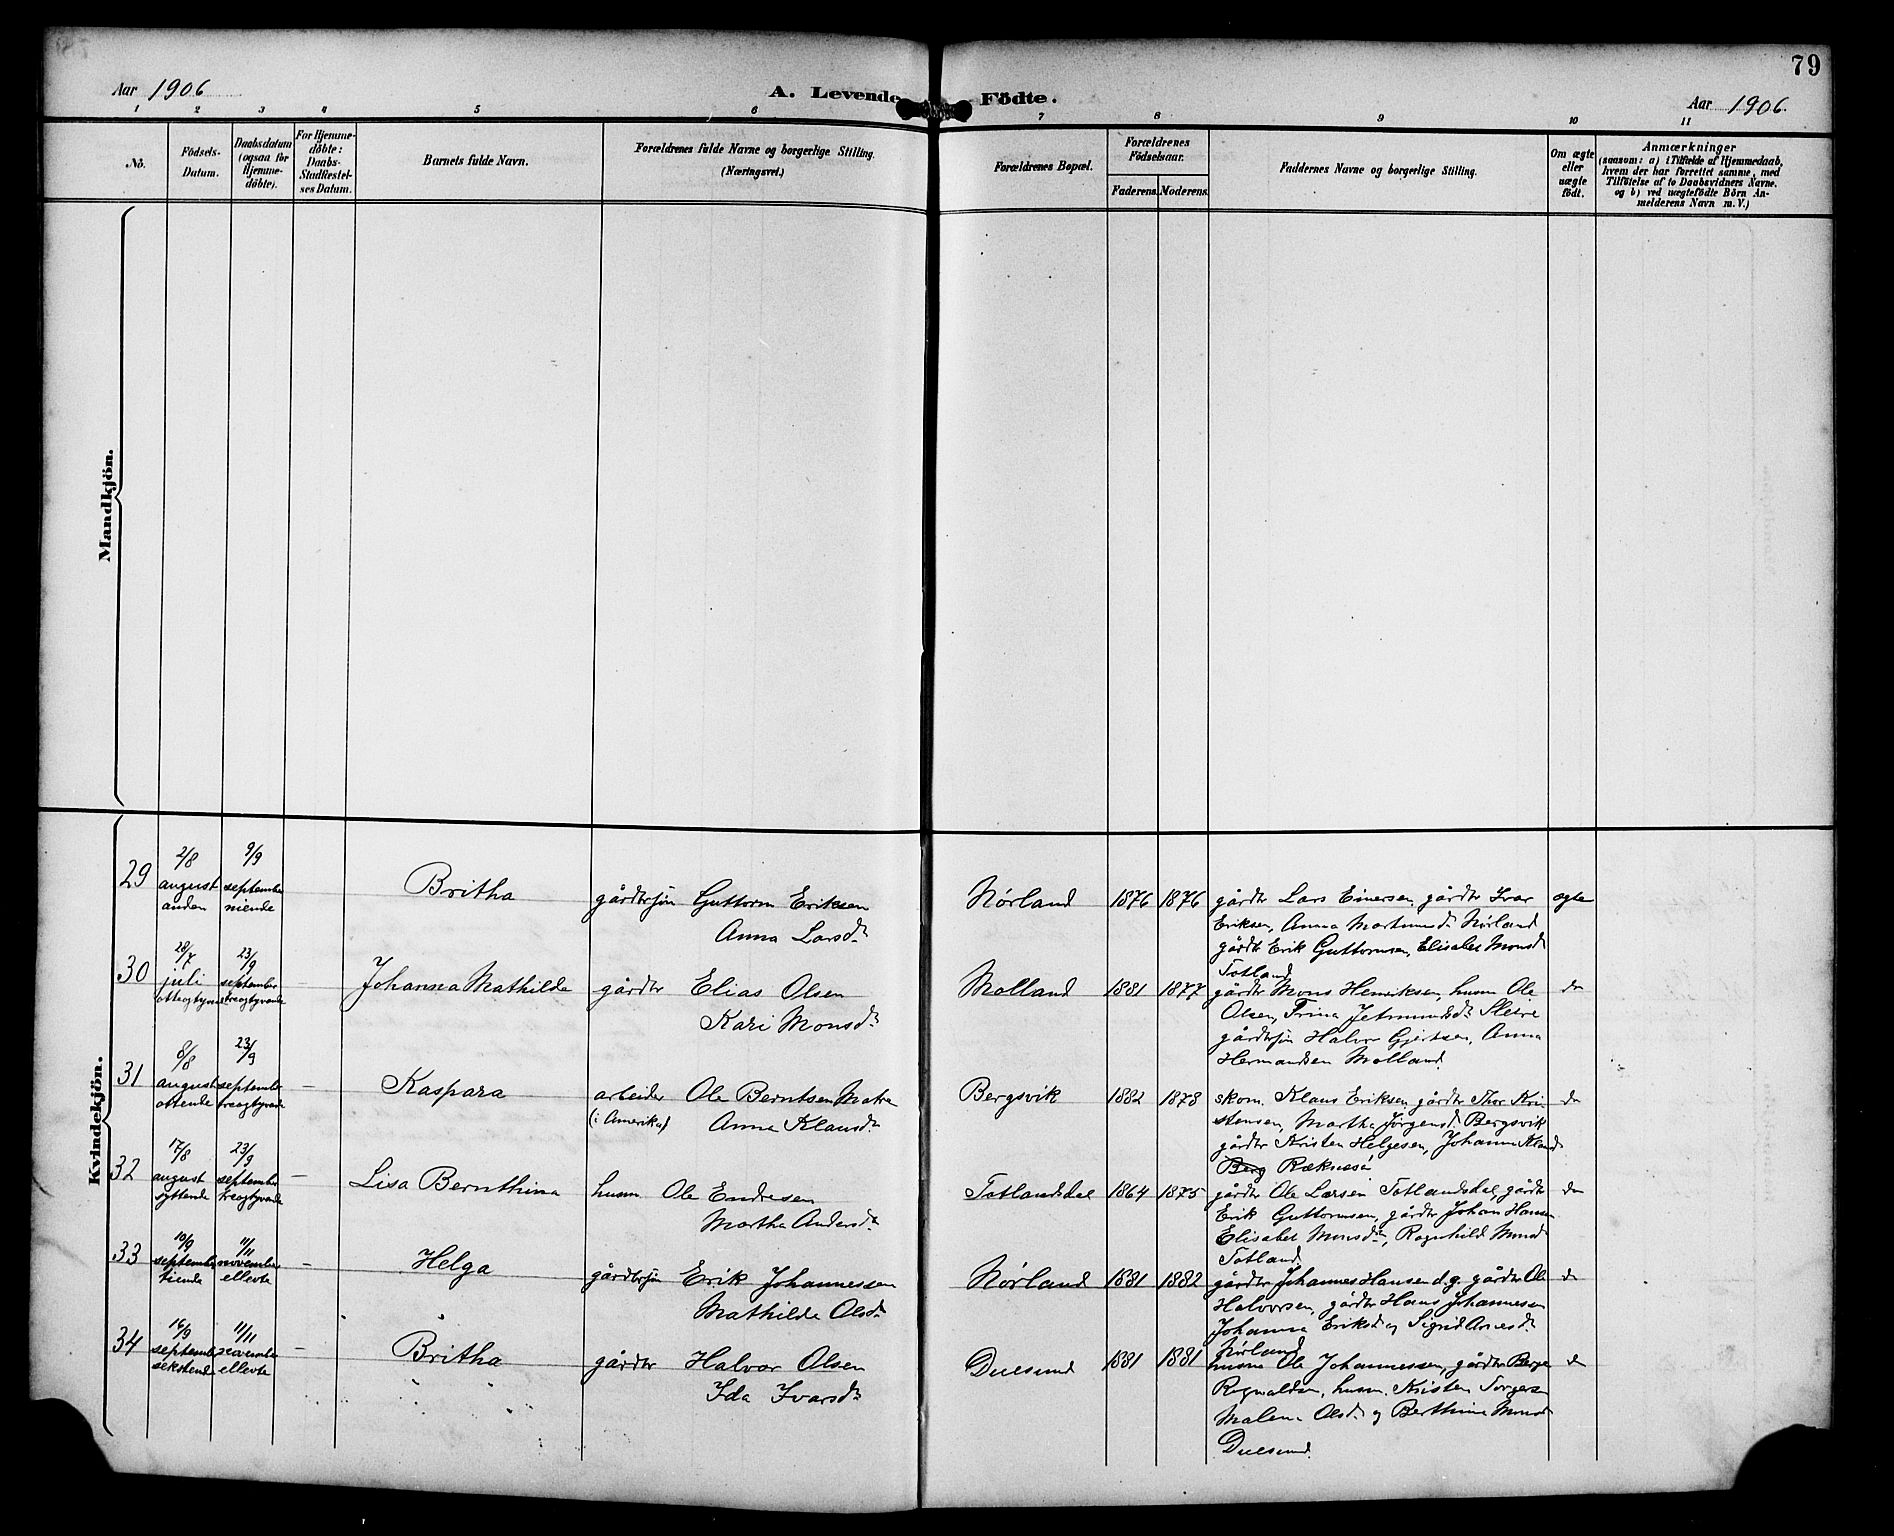 79
Aar 1906
A. Levende Födte.
Aar 1906.
1 2 3 4 5 6 7 8 9 10 11
No.
Födsels-Datum.
Daabsdatum (ogsaa for Hjemmedöbte).
For Hjemmedöbte: Daabs-Stadfestelses Datum.
Barnets fulde Navn.
Forældrenes fulde Navne og borgerlige Stilling. (Næringsvei.)
Forældrenes Bopæl.
Forældrenes Födselsaar.
Faderens. Moderens.
Faddernes Navne og borgerlige Stilling.
Om ægte eller uægte födt.
Anmærkninger
(saasom: a) i Tilfælde af Hjemmedaab,
hvem der har forrettet samme, med
Tilföielse af to Daabsvidners Navne.
og b) ved uægtefödte Börn An-
melderens Navn m. V.)
Mandkjön.
Kvindekjön.
29 2/8 august anden 9/9 september niende
Britha
gårdbrsøn Guttorm Eriksen
Anna Larsdtr
Nørland 1876 1876
gårdbr Lars Einersen, gårdbr Ivar
Eriksen, Anna Martinusdtr Nørland
gårdbr Erik Guttormsen, Elisabet Monsdtr
Totland
ægte
30 28/7 juli otteogtyvende 23/9 september treogtyvende —
Johanna Mathilde
gårdbr Elias Olsen
Kari Monsdtr
Molland 1881 1877
gårdbr Mons Henriksen, husm Ole
Olsen, Trina Jetmundsdtr Sletre
gårdbrsøn Halvor Gjertsen, Anna
Hermandsen Molland
do
31 8/8 august ottende 23/9 september treogtyvende —
Kaspara
arbeider Ole Berntsen Matre
(i Amerika) Anna Klausdtr
Bergsvik 1882 1878
skom. Klaus Eriksen gårdbr Thor Kri-
stensen, Martha Jørgensd. Bergsvik
gårdbr Kristen Helgesen, Johanne Klausd
Berg Ræknesø
do
32 17/8 august syttende 23/9 september treogtyvende —
Lisa Bernthina
husm. Ole Endresen
Martha Andersdtr
Totlandsdal 1864 1875
gårdbr Ole Larsen Totlandsdal, gårdbr
Erik Guttormsen, gårdbr Johan Hansen
Elisabet Monsdtr, Ragnhild Monsd
Totland
do
33 10/9 september tiende 11/11 november ellevte —
Helga
gårdbrsøn Erik Johannessen
Mathilde Olsdtr
Nørland 1881 1882
gårdbr Johannes Hansen d.g. gårdbr Ole
Halvorsen, gårdbr Hans Johannesen
Johanna Eriksd og Sigrid Arnesdtr
Nørland
do
34 16/9 september sekstende 11/11 november ellevte —
Britha
gårdbr Halvor Olsen
Ida Ivarsdtr
Duesund 1881 1881
husm Ole Johannessen, gårdbr Berge
Rognaldsen, husm. Kristen Torgersen
Malene Olsdtr og Berthine Monsd
Duesund
do